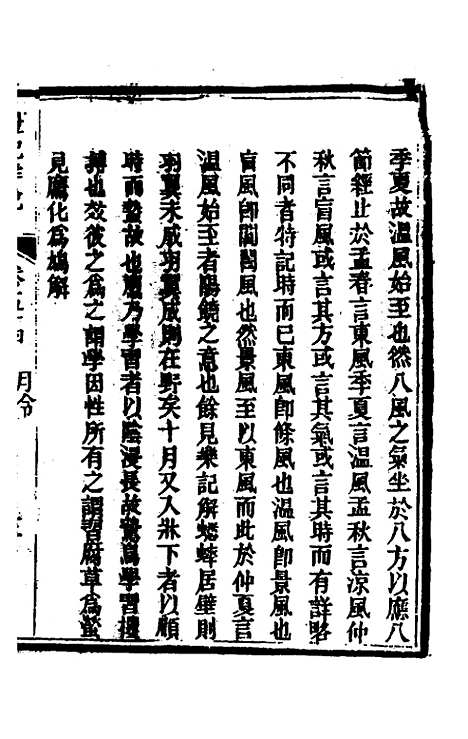 季夏故溫風始至也然八風之氣坐於八方以應八
節經止於孟春言東風季夏言溫風孟秋言涼風仲
秋言盲風或言其方或言其氣或言其時而有詳略
不同者特記時而已東風即條風也溫風即景風也
盲風即閶闔風也然景風至以東風而此於仲夏言
溫風始至者陽饒之意也餘見樂記解蟋蟀居壁則
羽翼未成羽翼成則在野矣十月又入牀下者以順
時而蟄故也鷹乃學習者以陰浸長故驚為學習搏
也效彼之為之謂學因性所有之謂習腐草為螢
見鷹化為鳩解
月令